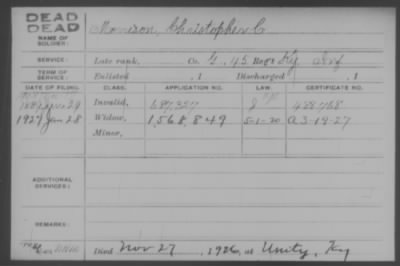 DEAD
DEAD
NAME OF SOLDIER: Morrison, Christopher C
SERVICE: Late rank, Co. G, 45 Reg't Ky Inf
TERM OF SERVICE: Enlisted , 1 Discharged , 1
DATE OF FILING. CLASS. APPLICATION NO. LAW. CERTIFICATE NO.
29 Invalid, 687,337 488,768
1927 Jan 28 Widow, 1,568,849 5-1-20 A 3-19-27
Minor,
ADDITIONAL SERVICES:
REMARKS:
Died Nov 27, 1926, at Unity, Ky